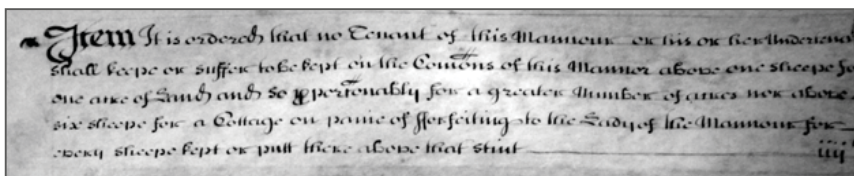 Item It is ordered that no Tenant of this Mannour or his or her Undertena
shall keepe or suffer to be kept on the Comons of this Mannor above one sheepe fo
one acre of Land and so pportionably for a greater Number of acres nor above
six sheepe for a Cottage on paine of fforfeiting to the Lady of the Mannour for
every sheepe kept or putt there above that stint iiij